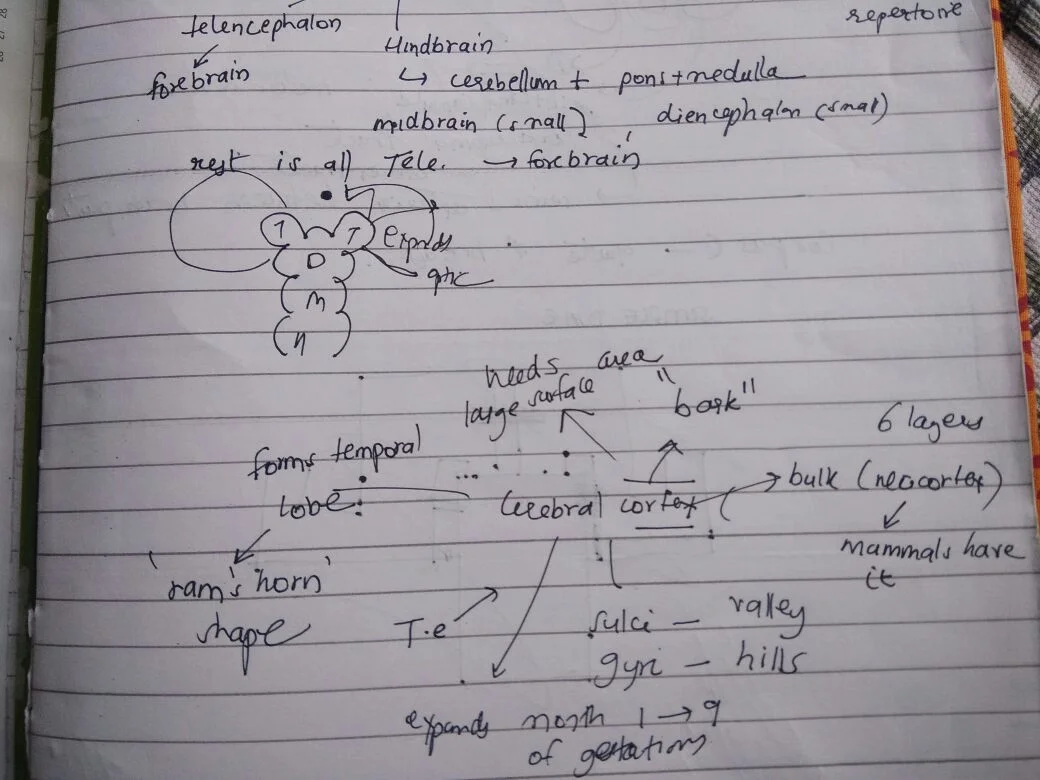 repertoire
telencephalon
Hindbrain
forebrain
↳ cerebellum + pons + medulla
midbrain (small), diencephalon (small)
rest is all Tele. → forebrain
T T expnds
D
M
H
needs area
large surface
"bark"
6 layers
forms temporal
lobe:
Cerebral cortex
bulk (neocortex)
mammals have
it
'ram's horn'
shape
T.e
sulci – valley
gyri – hills
expands month 1 → 9
of gestation